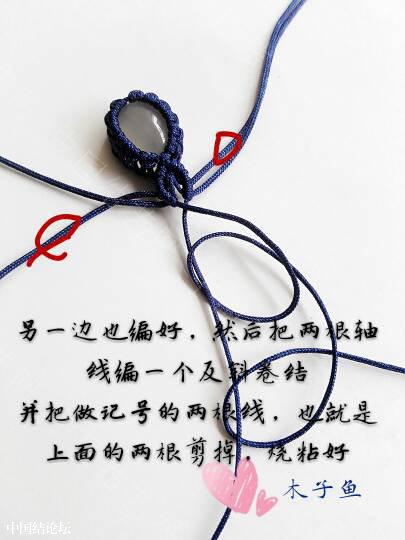 另一边也编好，然后把两根轴
线编一个反斜卷结
并把做记号的两根线，也就是
上面的两根剪掉，烧粘好
木子鱼
中国结论坛